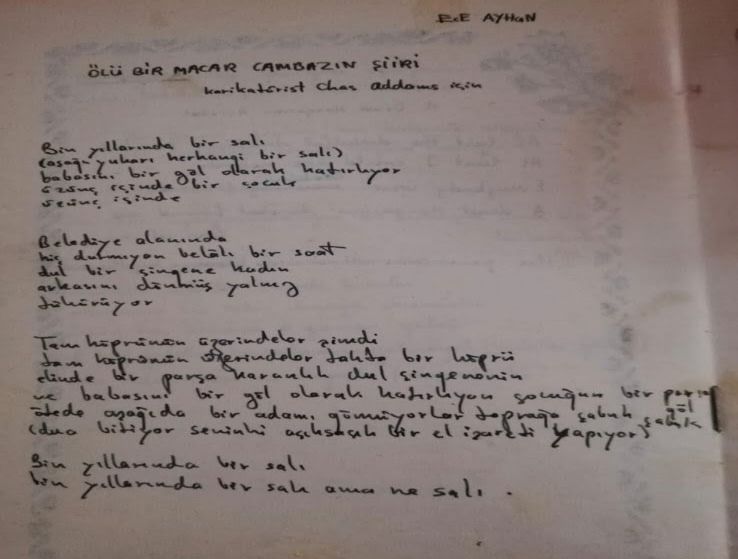 ECE AYHAN
ÖLÜ BİR MACAR CAMBAZIN ŞİİRİ
karikatürist Chas addams için
Bin yıllarında bir salı
(aşağı yukarı herhangi bir salı)
babasını bir göl olarak hatırlıyor
üzünç içinde bir çocuk
sevinç içinde
Belediye alanında
hiç durmıyan belâlı bir saat
dul bir çingene kadın
arkasını dönmüş yalnız
tükürüyor
Tam köprünün üzerindeler şimdi
tam köprünün üzerindeler tahta bir köprü
elinde bir parça karanlık dul çingenenin
ve babasını bir göl olarak hatırlıyan çocuğun bir parça göl
ötede aşağıda bir adamı gömüyorlar toprağa çabuk çabuk
(dua bitiyor seninki açıksaçık bir el işareti yapıyor)
Bin yıllarında bir salı
bin yıllarında bir salı ama ne salı.